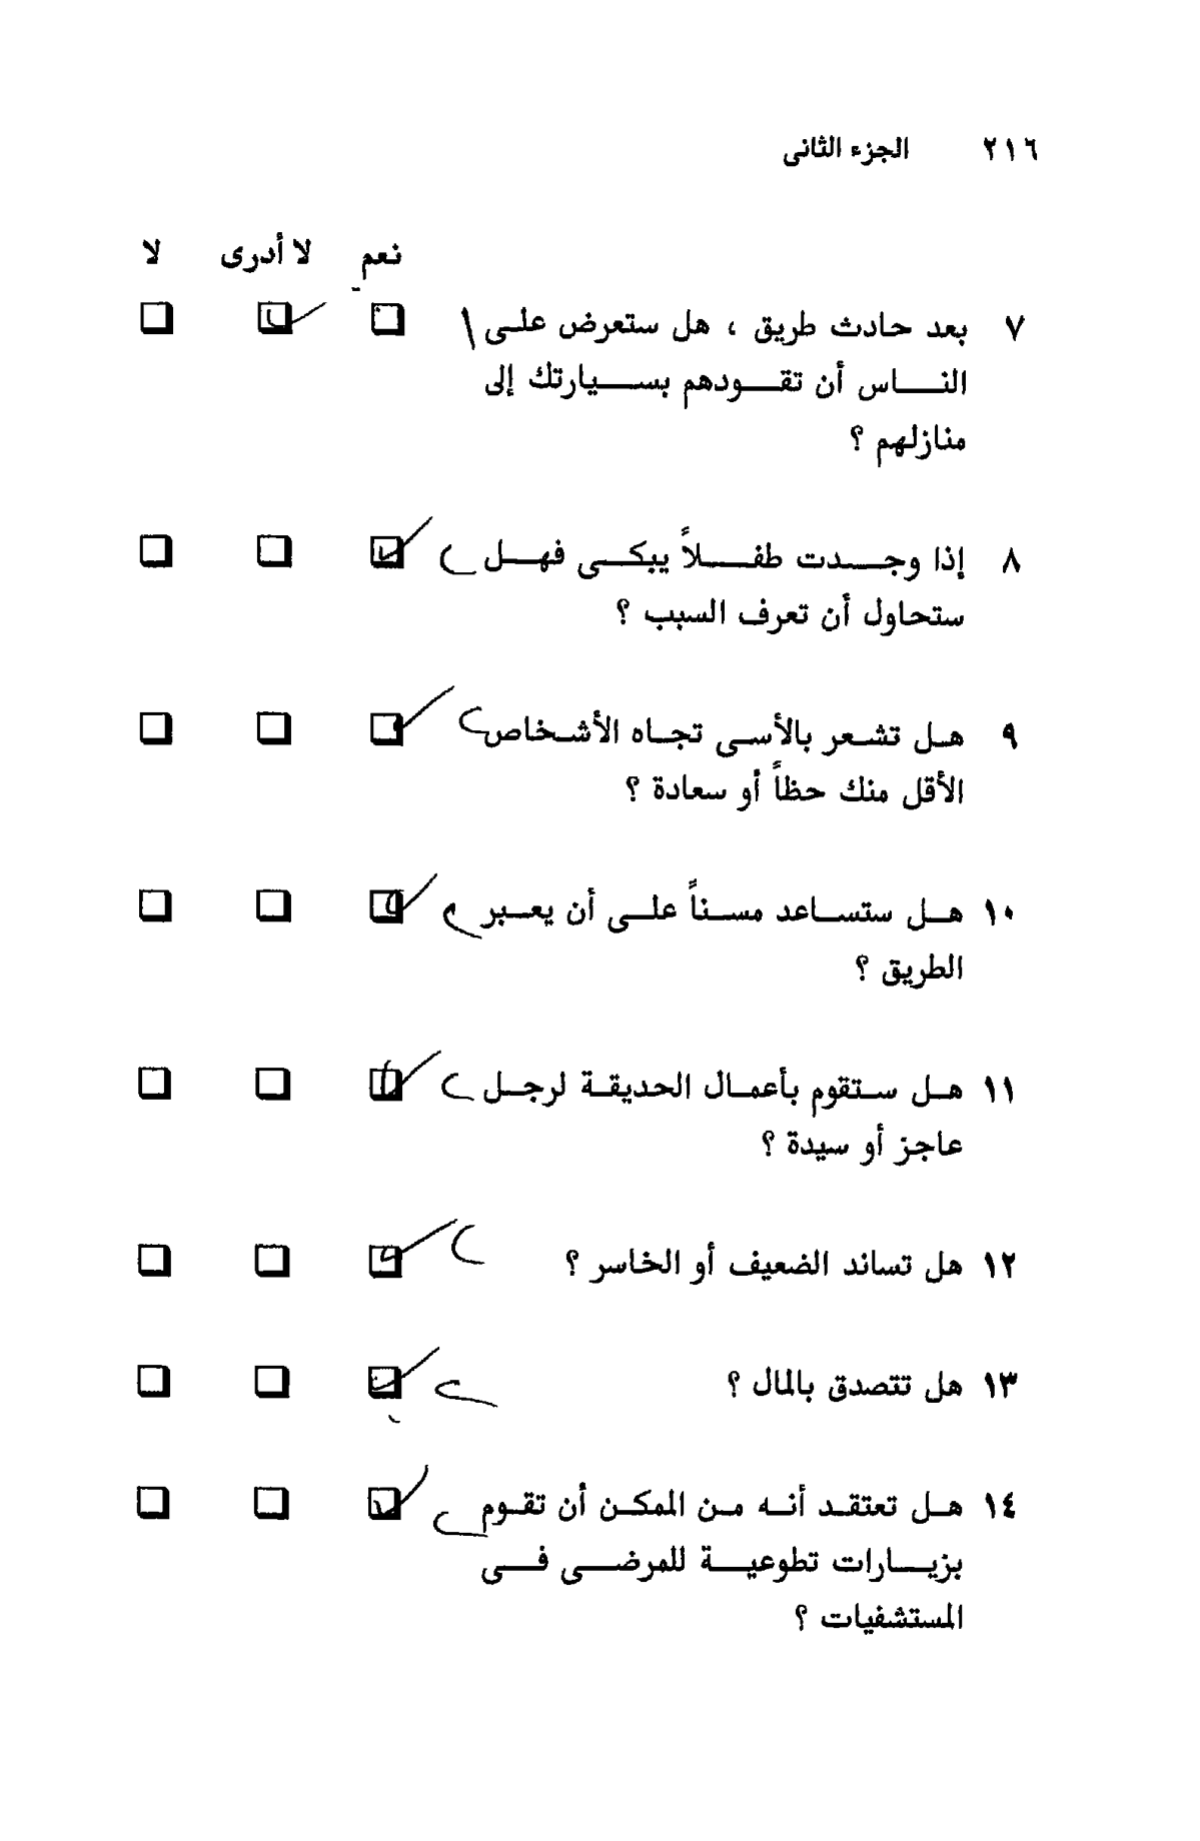 ٢١٦ الجزء الثانى
نعم لا أدرى لا
٧ بعد حادث طريق ، هل ستعرض على
النـــاس أن تقـــودهم بســـيارتك إلى
منازلهم ؟
٨ إذا وجـــدت طفـــلاً يبكـــى فهـــل
ستحاول أن تعرف السبب ؟
٩ هـل تشـعر بالأسـى تجـاه الأشـخاص
الأقل منك حظاً أو سعادة ؟
١٠ هـل ستسـاعد مسـناً علـى أن يعـبر
الطريق ؟
١١ هـل سـتقوم بأعمـال الحديقـة لرجـل
عاجز أو سيدة ؟
١٢ هل تساند الضعيف أو الخاسر ؟
١٣ هل تتصدق بالمال ؟
١٤ هـل تعتقـد أنـه مـن الممكـن أن تقـوم
بزيـــارات تطوعيـــة للمرضـــى فـــى
المستشفيات ؟